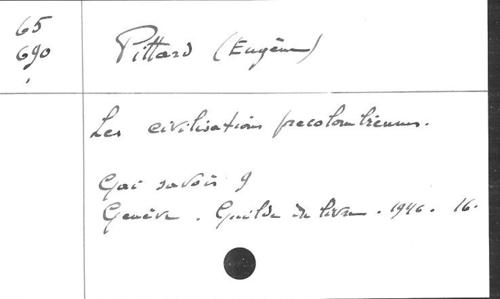 65
690
Pittard (Eugène)
Les civilisations precolombiennes.
Gai savoir 9
Genève. Guilde du livre. 1946. 16.